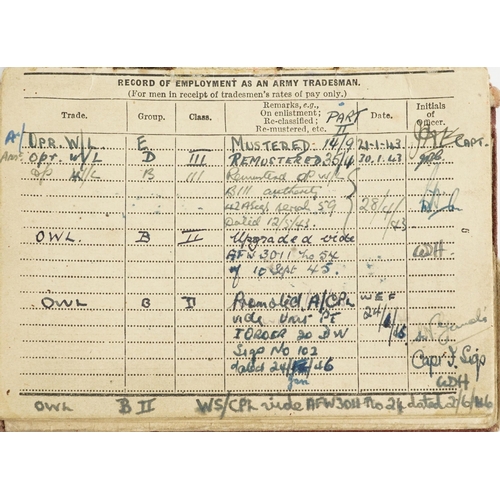 RECORD OF EMPLOYMENT AS AN ARMY TRADESMAN.
(For men in receipt of tradesmen's rates of pay only.)
Trade. Group. Class. Remarks, e.g., On enlistment; Re-classified; Re-mustered, etc. PART II Date. Initials of Officer.
OPR W/L E MUSTERED 14/9 21-1-43 CAPT.
OPT. W/L D III REMUSTERED 30.1.43
O/P W/L B III Remustered OP W/L
BIII authority
serial 59 28/4/43
Dated 12/5/43
OWL. B II Upgraded vide
AFW3011 No 54 WDH.
of 10 Sept 45.
OWL B II Promoted A/CPL WEF
vide Unit PT 24/1/46
I ORDER 20 DW
Sigs No 102 Capt. Sigs
dated 24/ /46 WDH
Jan
OWL B II WS/CPL vide AFW3011 No 24 dated 21/6/46